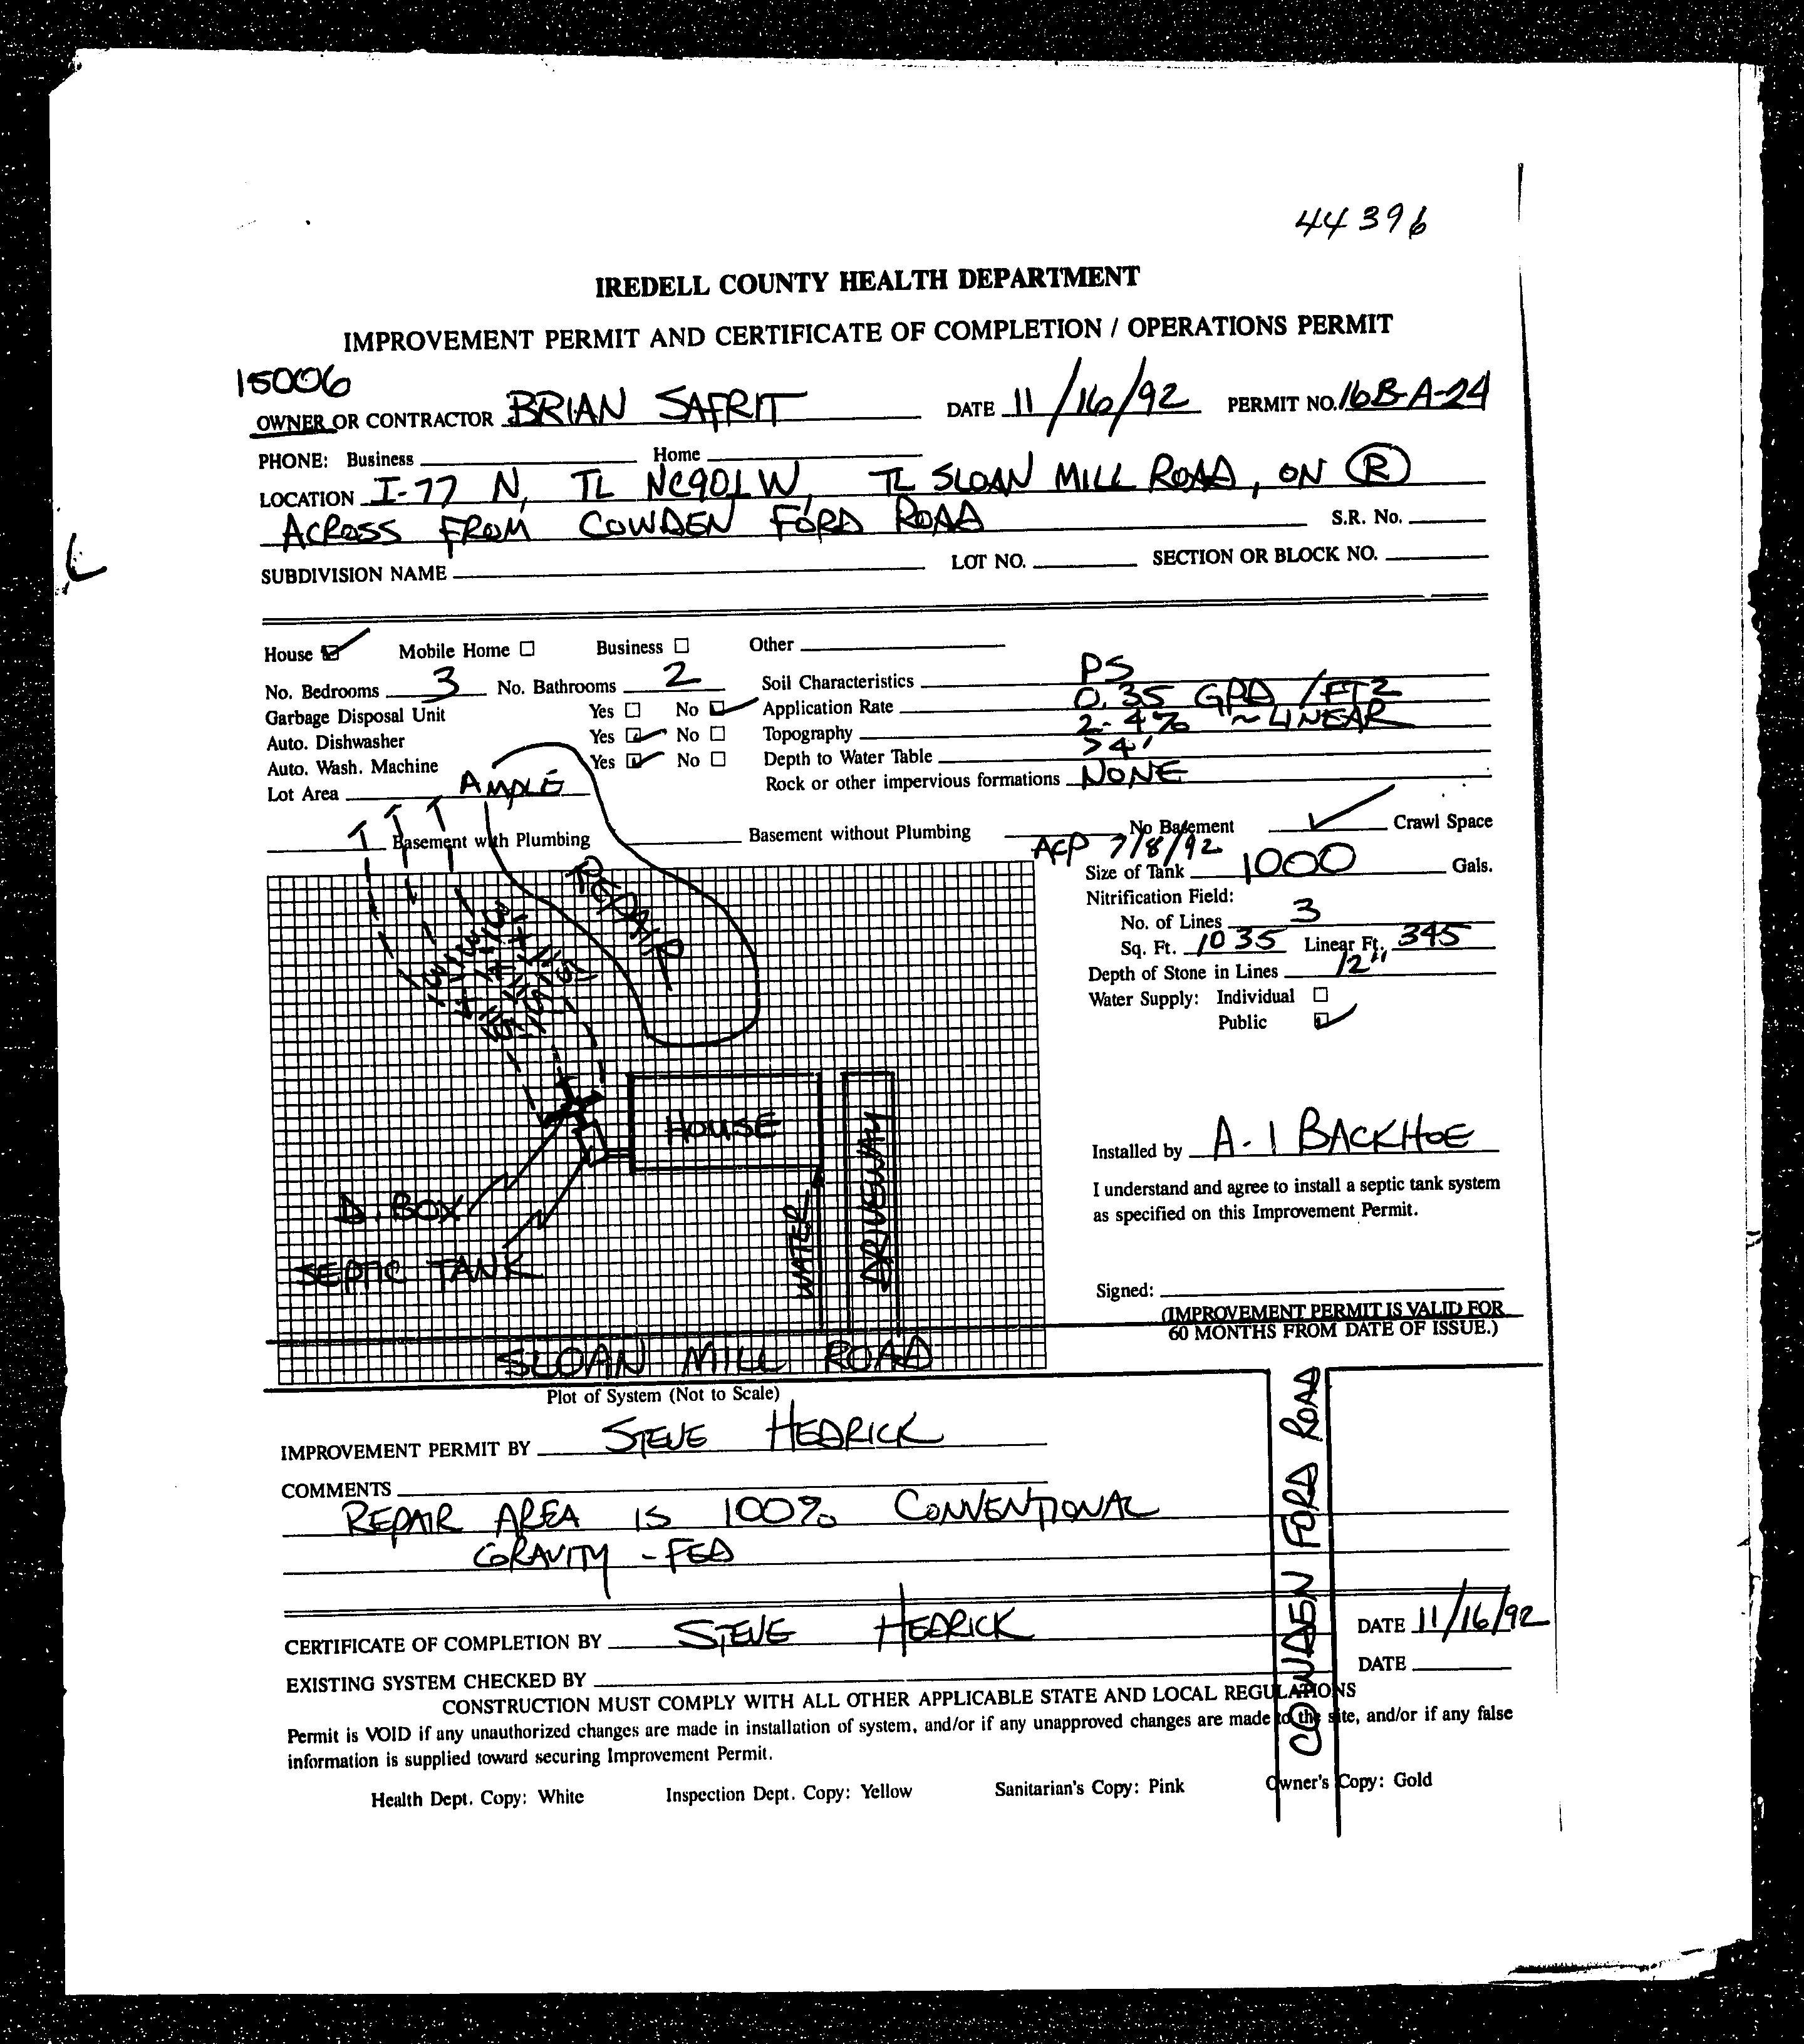 44396
IREDELL COUNTY HEALTH DEPARTMENT
IMPROVEMENT PERMIT AND CERTIFICATE OF COMPLETION / OPERATIONS PERMIT
15006
OWNER OR CONTRACTOR BRIAN SAFRIT DATE 11/16/92 PERMIT NO. 16B-A-24
PHONE: Business Home
LOCATION I-77 N, TL NC901 W, TL SLOAN MILL ROAD, ON R
ACROSS FROM COWDEN FORD ROAD S.R. No.
SUBDIVISION NAME LOT NO. SECTION OR BLOCK NO.
House Mobile Home Business Other
No. Bedrooms 3 No. Bathrooms 2 Soil Characteristics PS
Garbage Disposal Unit Yes No Application Rate 0.35 GPD/FT2
Auto. Dishwasher Yes No Topography 2-4% ~LINEAR
Auto. Wash. Machine Yes No Depth to Water Table >4'
Lot Area AMPLE Rock or other impervious formations NONE
Basement with Plumbing Basement without Plumbing No Basement Crawl Space
7/8/92
Size of Tank 1000 Gals.
Nitrification Field:
No. of Lines 3
Sq. Ft. 1035 Linear Ft. 345
Depth of Stone in Lines 12"
Water Supply: Individual
Public
REPAIR
HOUSE
DRIVEWAY
WATER
D. BOX
SEPTIC TANK
SLOAN MILL ROAD
Installed by A-1 BACKHOE
I understand and agree to install a septic tank system
as specified on this Improvement Permit.
Signed:
(IMPROVEMENT PERMIT IS VALID FOR
60 MONTHS FROM DATE OF ISSUE.)
Plot of System (Not to Scale)
COWDEN FORD ROAD
IMPROVEMENT PERMIT BY STEVE HEDRICK
COMMENTS
REPAIR AREA IS 100% CONVENTIONAL
GRAVITY-FED
CERTIFICATE OF COMPLETION BY STEVE HEDRICK DATE 11/16/92
EXISTING SYSTEM CHECKED BY DATE
CONSTRUCTION MUST COMPLY WITH ALL OTHER APPLICABLE STATE AND LOCAL REGULATIONS
Permit is VOID if any unauthorized changes are made in installation of system, and/or if any unapproved changes are made to the site, and/or if any false
information is supplied toward securing Improvement Permit.
Health Dept. Copy: White Inspection Dept. Copy: Yellow Sanitarian's Copy: Pink Owner's Copy: Gold